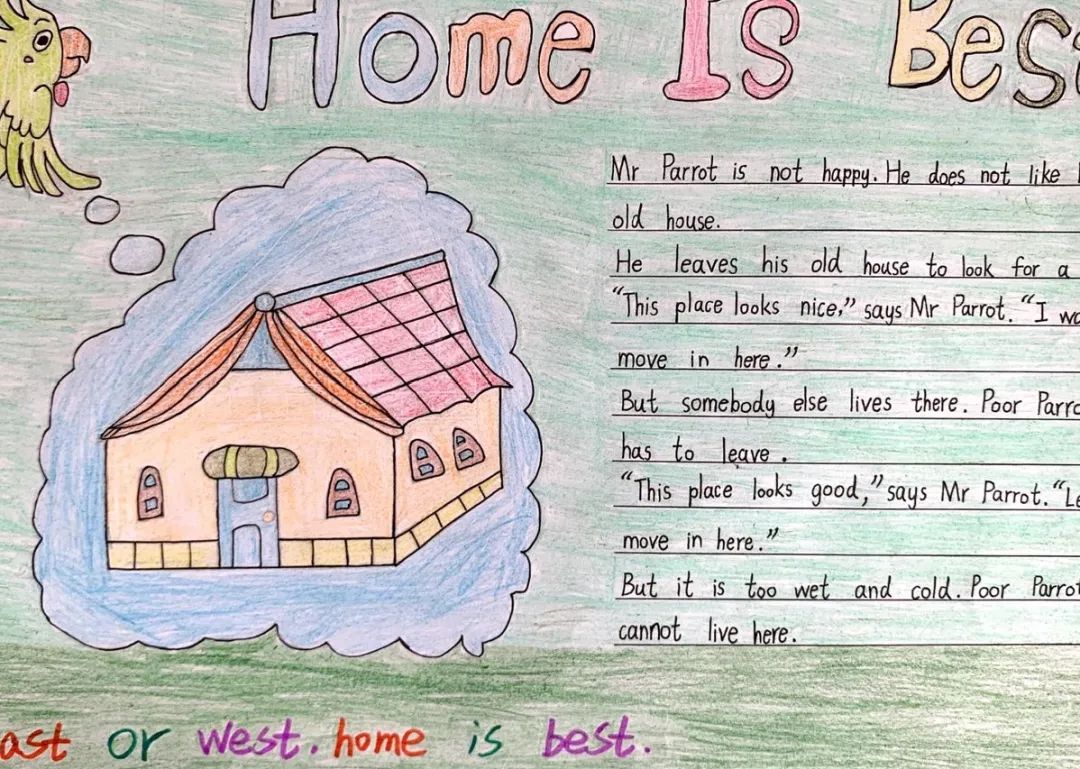 Home Is Bes
Mr Parrot is not happy. He does not like
old house.
He leaves his old house to look for a
"This place looks nice," says Mr Parrot. "I
move in here."
But somebody else lives there. Poor
has to leave.
"This place looks good," says Mr Parrot. "
move in here."
But it is too wet and cold. Poor Parrot
cannot live here.
ast or west. home is best.